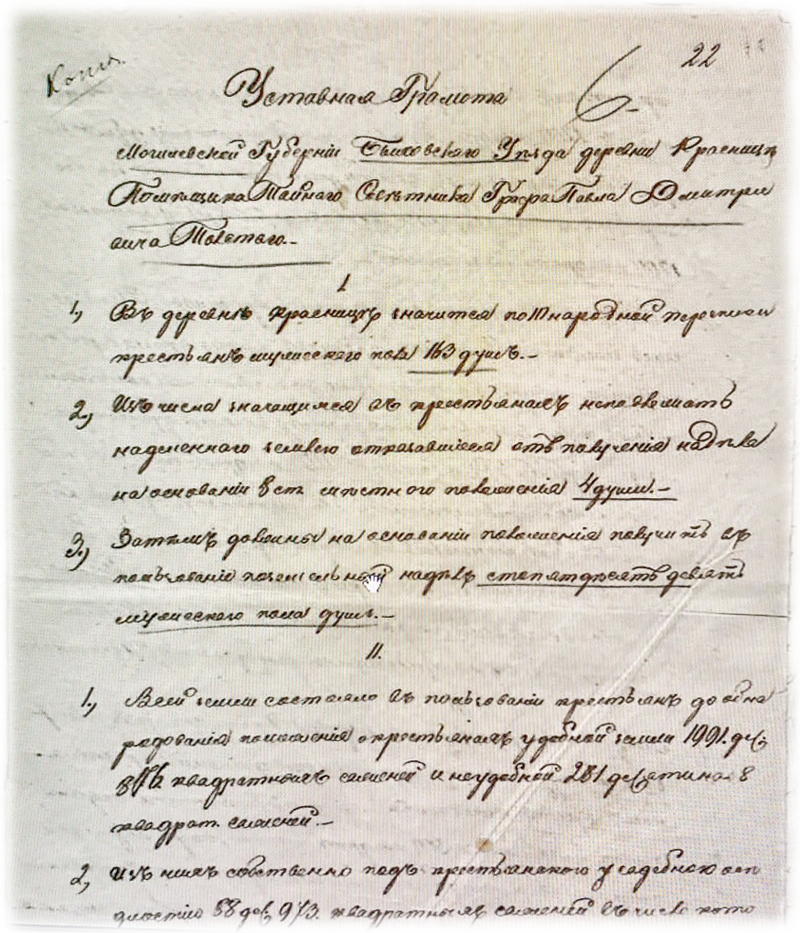 22
Копія.
Уставная Грамота
Могилевской Губерніи Быховскаго Уѣзда деревни Красницы
Помѣщика Тайнаго Совѣтника Графа Павла Дмитріе
вича Толстаго.-
I
1, Въ деревнѣ Красницѣ значится по 10 народной переписи
крестьянъ мужескаго пола 163 душъ.-
2, Изъ числа значащихся въ крестьянахъ неподлежатъ
наделенного землею отказавшіеся отъ полученія надѣла
на основаніи 8 ст. мѣстного положенія 4 души.-
3, Затѣмъ должны на основаніи положенія получить въ
пользованіе поземельной надѣлъ стопятдѣсятъ девять
мужескаго пола душъ.-
II.
1, Всей земли состояло въ пользованіи крестьянъ до обна
родованія положенія о крестьянахъ удобной земли 1991 дес,
квадратныхъ саженей и неудобной 281 десятина 8
квадрат. саженей.-
2, Изъ нихъ собственно подъ крестьянскою усадебною осѣ
длостію 58 дес. 973. квадратныхъ саженей въ числѣ кото